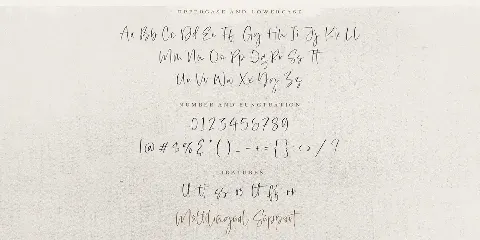 UPPERCASE AND LOWERCASE
Aa Bb Cc Dd Ee Ff Gg Hh Ii Jj Kk Ll
Mm Nn Oo Pp Qq Rr Ss Tt
Uu Vv Ww Xx Yy Zz
NUMBER AND PUNCTUATION
0123456789
! @ # $ % & * ( ) _ - + = { } : < > / ?
LIGATURES
Multilingual Support